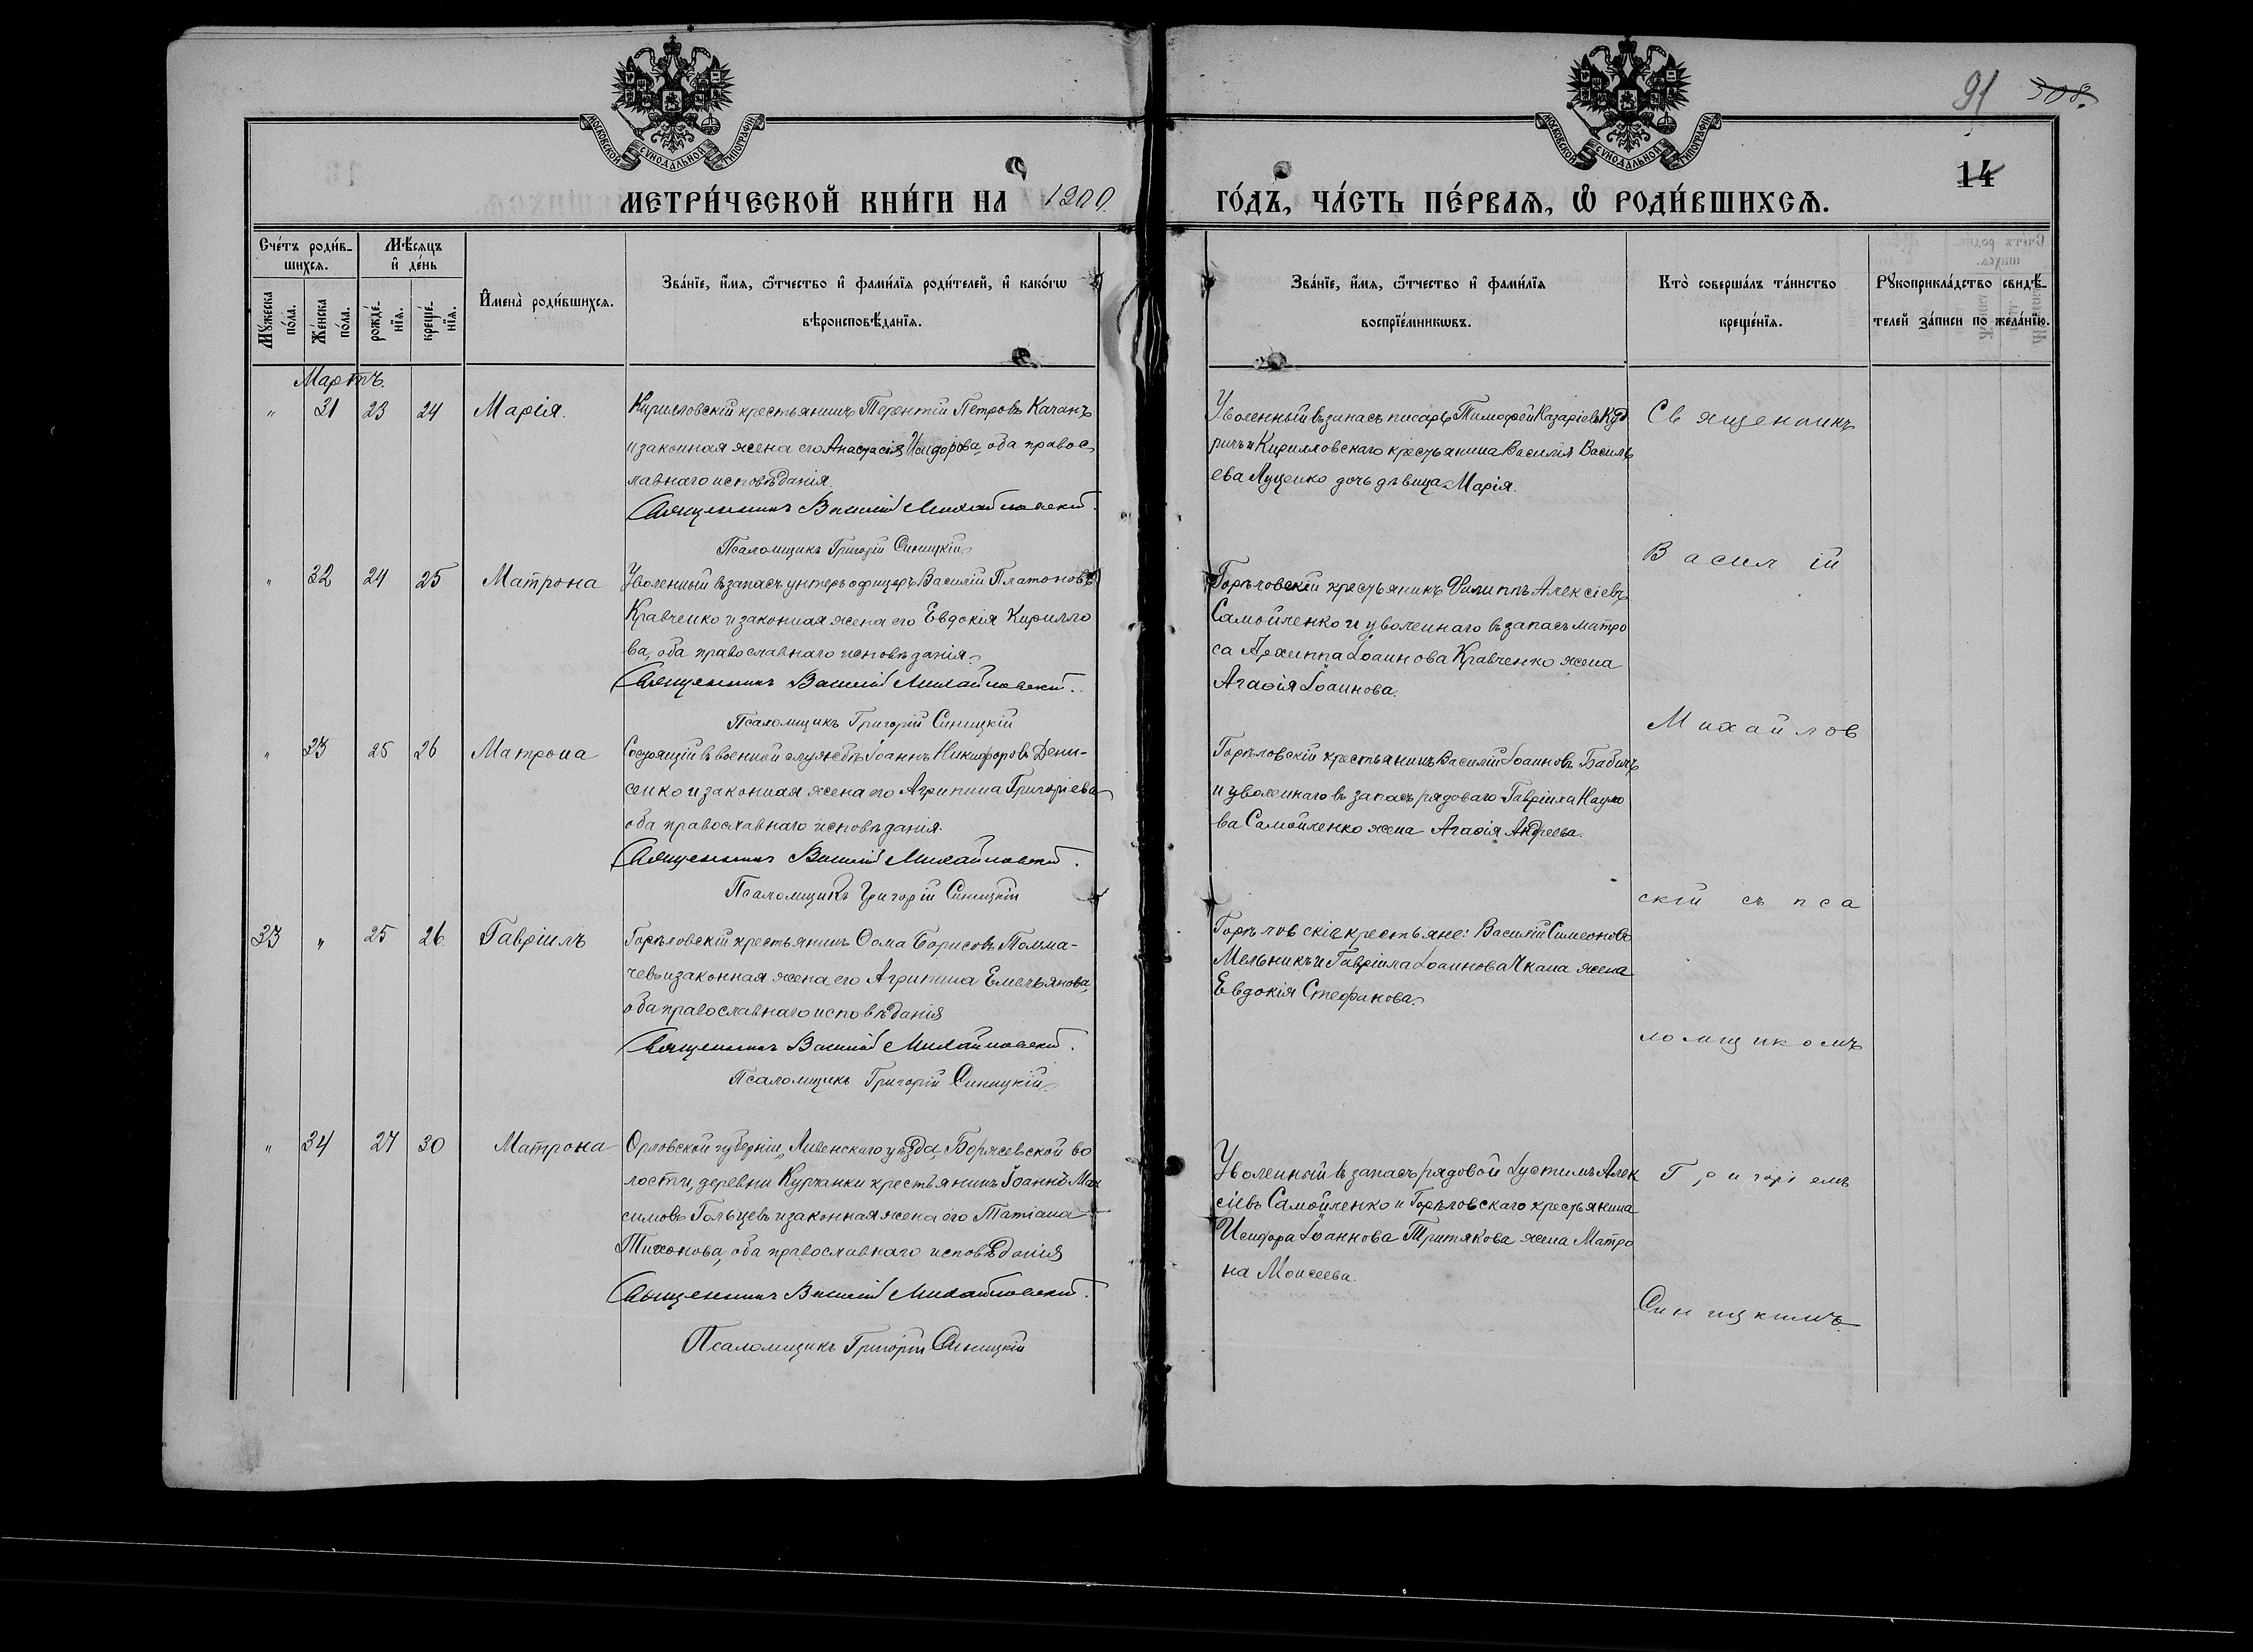 91 308.
14
МОСКОВСКОЙ СѴНОДАЛЬНОЙ ТИПОГРАФІИ
МОСКОВСКОЙ СѴНОДАЛЬНОЙ ТИПОГРАФІИ
МЕТРИ́ЧЕСКОЙ КНИ́ГИ НА 1900. ГО́ДЪ, ЧА́СТЬ ПЕ́РВАѦ, Ѡ҆ РОДИ́ВШИХСѦ.
Сче́тъ роди́в-
шихсѧ.
Мѣ́сѧцъ
и҆ де́нь
Мꙋ́жеска
по́ла.
Же́нска
по́ла.
рожде́-
нїѧ.
креще́-
нїѧ.
И҆мена̀ роди́вшихсѧ.
Зва́нїе, и҆́мѧ, ѻ҆́тчество и҆ фами́лїѧ роди́телей, и҆ како́гѡ
вѣроисповѣ́данїѧ.
Зва́нїе, и҆́мѧ, ѻ҆́тчество и҆ фами́лїѧ
воспрїе́мникѡвъ.
Кто̀ соверша́лъ та́инство
креще́нїѧ.
Рꙋкоприкла́дство свидѣ́-
телей за́писи по жела́нїю.
Мартъ.
" 31 23 24 Марія.
Кирилловскій крестьянинъ Терентій Петровъ Качанъ
и законная жена его Анастасія Исидорова, оба правос
лавнаго исповѣданія.
Священникъ Василій Михайловскій.
Псаломщикъ Григорій Синицкій
Уволенный въ запасъ писарь Тимофей Назаріевъ
ричъ и Кирилловскаго крестьянина Василія Василь
ева Луценко дочь дѣвица Марія.
" 32 24 25 Матрона
Уволенный въ запасъ унтеръ офицеръ Василій Платоновъ
Кравченко и законная жена его Евдокія Кирилло
ва, оба православнаго исповѣданія.
Священникъ Василій Михайловскій.
Псаломщикъ Григорій Синицкій
Горѣловскій крестьянинъ Филиппъ Алексіевъ
Самойленко и уволеннаго въ запасъ матро
са Архиппа Іоаннова Кравченко жена
Агаѳія Іоаннова.
" 33 25 26 Матрона
Состоящій въ военной службѣ Іоаннъ Никифоровъ Дени-
сенко и законная жена его Агрипина Григоріева
оба православнаго исповѣданія.
Священникъ Василій Михайловскій.
Псаломщикъ Григорій Синицкій
Горѣловскій крестьянинъ Василій Іоанновъ Бабичъ
и уволеннаго въ запасъ рядоваго Гавріила Наумо
ва Самойленко жена Агаѳія Андреева.
33 " 25 26 Гавріилъ
Горѣловскій крестьянинъ Ѳома Борисовъ Толма-
чевъ и законная жена его Агрипина Емельянова,
оба православнаго исповѣданія
Священникъ Василій Михайловскій.
Псаломщикъ Григорій Синицкій
Горѣловскіе крестьяне: Василій Симеоновъ
Мельникъ и Гавріила Іоаннова Чкана жена
Евдокія Стефанова.
" 34 27 30 Матрона
Орловской губерніи, Ливенскаго уѣзда, волости, деревни Курчанки крестьянинъ Іоаннъ Мак
симовъ Гольцевъ и законная жена его Татіана
Тихонова, оба православнаго исповѣданія
Священникъ Василій Михайловскій.
Псаломщикъ Григорій Синицкій
Уволенный въ запасъ рядовой Іустинъ Алек
сіевъ Самойленко и Горѣловскаго крестьянина
Исидора Іоаннова Тритякова жена Матро
на Моисеева.
Священникъ
Василій
Михайлов
скій съ пса
ломщикомъ
Григоріемъ
Синицкимъ.